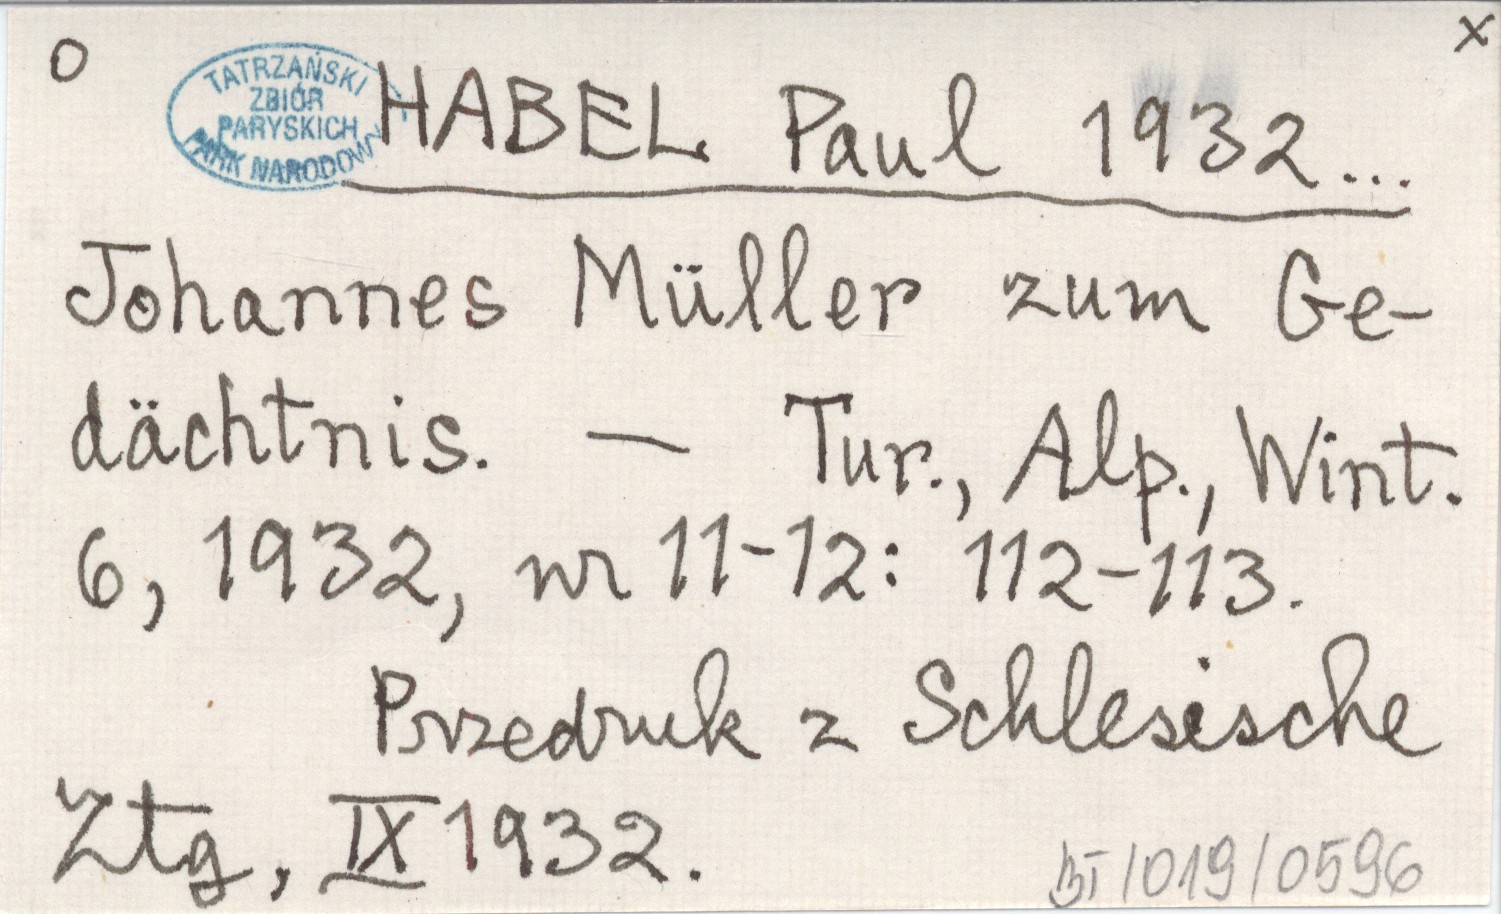 O
x
TATRZAŃSKI
ZBIÓR
PARYSKICH
PARK NARODOWY
HABEL Paul 1932...
Johannes Müller zum Ge-
dächtnis. — Tur., Alp., Wint.
6, 1932, nr 11-12: 112-113.
Przedruk z Schlesische
Ztg, IX 1932.
BT/019/0596